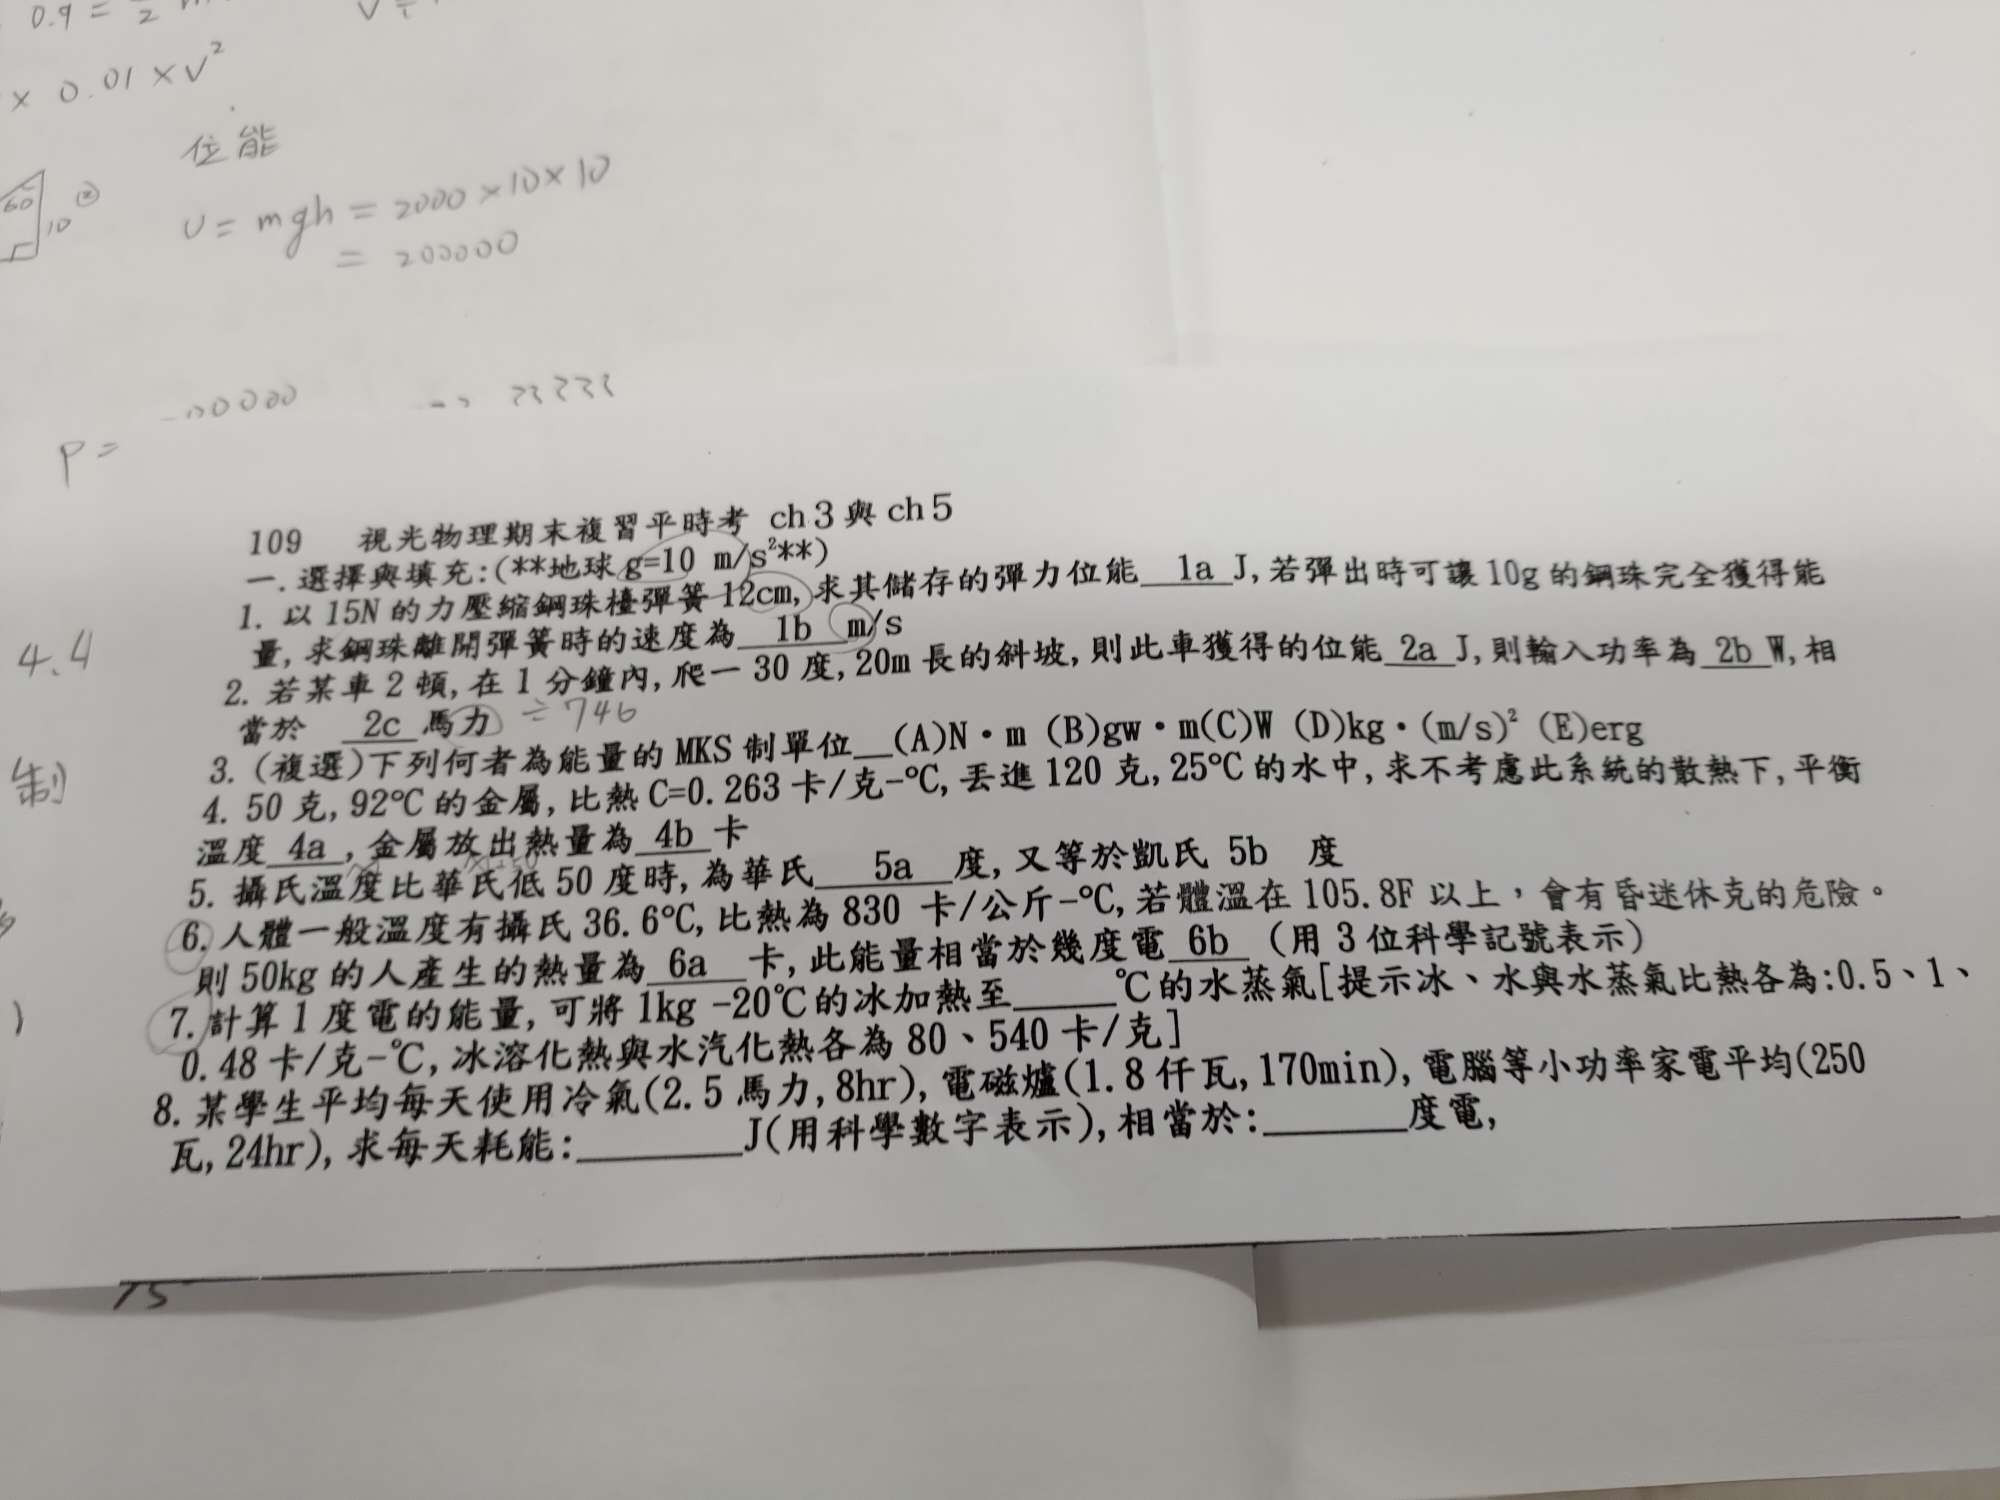 0.9 =
× 0.01 × V²
位能
60
10
②
U = mgh = 2000 × 10 × 10
= 200000
P =
4.4
制
109 視光物理期末複習平時考 ch3與ch5
一.選擇與填充:(**地球 g=10 m/s²**)
1. 以 15N 的力壓縮鋼珠檯彈簧 12cm, 求其儲存的彈力位能 1a J, 若彈出時可讓 10g 的鋼珠完全獲得能
量, 求鋼珠離開彈簧時的速度為 1b m/s
2. 若某車 2 頓, 在 1 分鐘內, 爬一 30 度, 20m 長的斜坡, 則此車獲得的位能 2a J, 則輸入功率為 2b W, 相
當於 2c 馬力 ÷746
3. (複選)下列何者為能量的 MKS 制單位__(A)N·m (B)gw·m(C)W (D)kg·(m/s)² (E)erg
4. 50 克, 92℃的金屬, 比熱 C=0.263 卡/克-℃, 丟進 120 克, 25℃的水中, 求不考慮此系統的散熱下, 平衡
溫度 4a , 金屬放出熱量為 4b 卡
5. 攝氏溫度比華氏低 50 度時, 為華氏 5a 度, 又等於凱氏 5b 度
6. 人體一般溫度有攝氏 36.6℃, 比熱為 830 卡/公斤-℃, 若體溫在 105.8F 以上，會有昏迷休克的危險。
則 50kg 的人產生的熱量為 6a 卡, 此能量相當於幾度電 6b (用 3 位科學記號表示)
7. 計算 1 度電的能量, 可將 1kg -20℃的冰加熱至_____℃的水蒸氣[提示冰、水與水蒸氣比熱各為:0.5、1、
0.48 卡/克-℃, 冰溶化熱與水汽化熱各為 80、540 卡/克]
8. 某學生平均每天使用冷氣(2.5 馬力, 8hr), 電磁爐(1.8 仟瓦, 170min), 電腦等小功率家電平均(250
瓦, 24hr), 求每天耗能:________J(用科學數字表示), 相當於:_______度電,
75